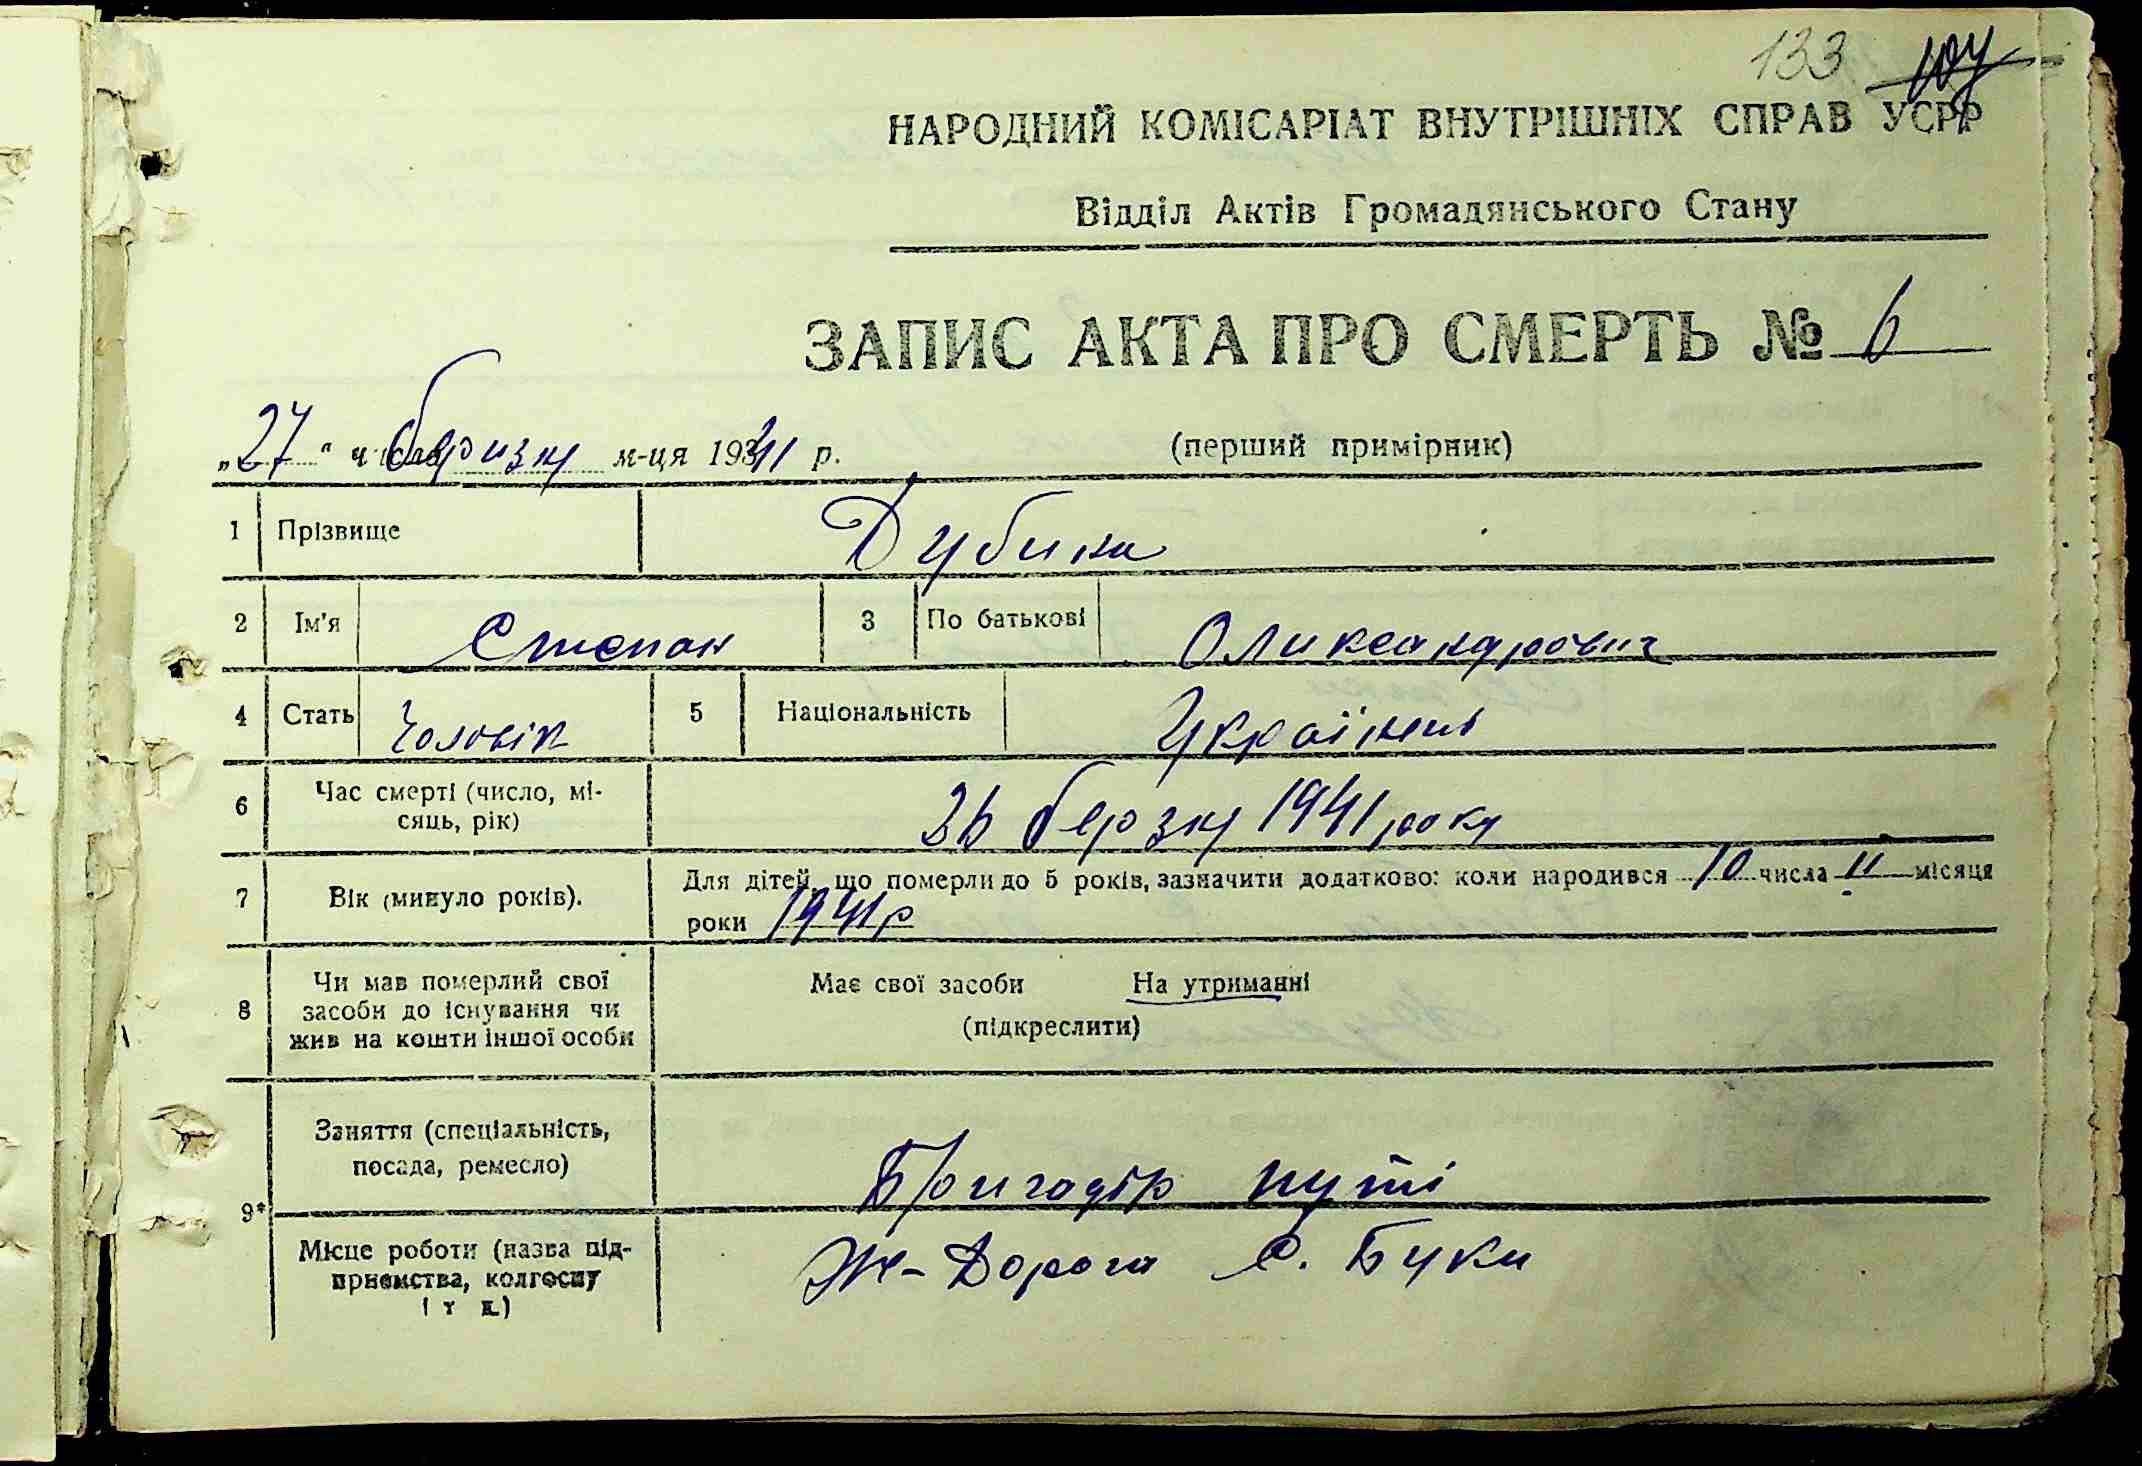 133 104
НАРОДНИЙ КОМІСАРІАТ ВНУТРІШНІХ СПРАВ УСРР
Відділ Актів Громадянського Стану
ЗАПИС АКТА ПРО СМЕРТЬ № 6
„27" числа беризня м-ця 1941 р. (перший примірник)
1 Прізвище Дубина
2 Ім'я Степан 3 По батькові Олександрович
4 Стать Чоловік 5 Національність Українець
6 Час смерті (число, мі-
сяць, рік) 26 березня 1941 року
7 Вік (минуло років). Для дітей, що померли до 5 років, зазначити додатково: коли народився 10 числа II місяця
роки 1941 р
8 Чи мав померлий свої
засоби до існування чи
жив на кошти іншої особи
Має свої засоби На утриманні
(підкреслити)
9* Заняття (спеціальність,
посада, ремесло) Бригадір путі
Місце роботи (назва під-
приємства, колгоспу
і т п.) Ж-Дорога С. Буки